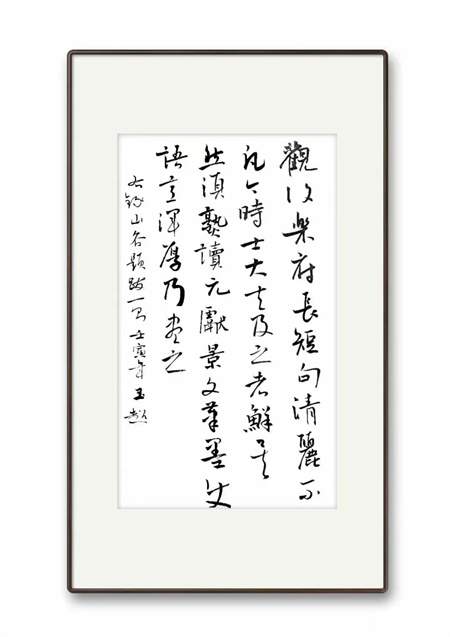 觀復樂府長短句清麗不
凡今時士大夫及之者鮮矣
然須熟讀元獻景文筆墨使
語意渾厚乃盡之
右錄山谷題跋一則壬寅年玉